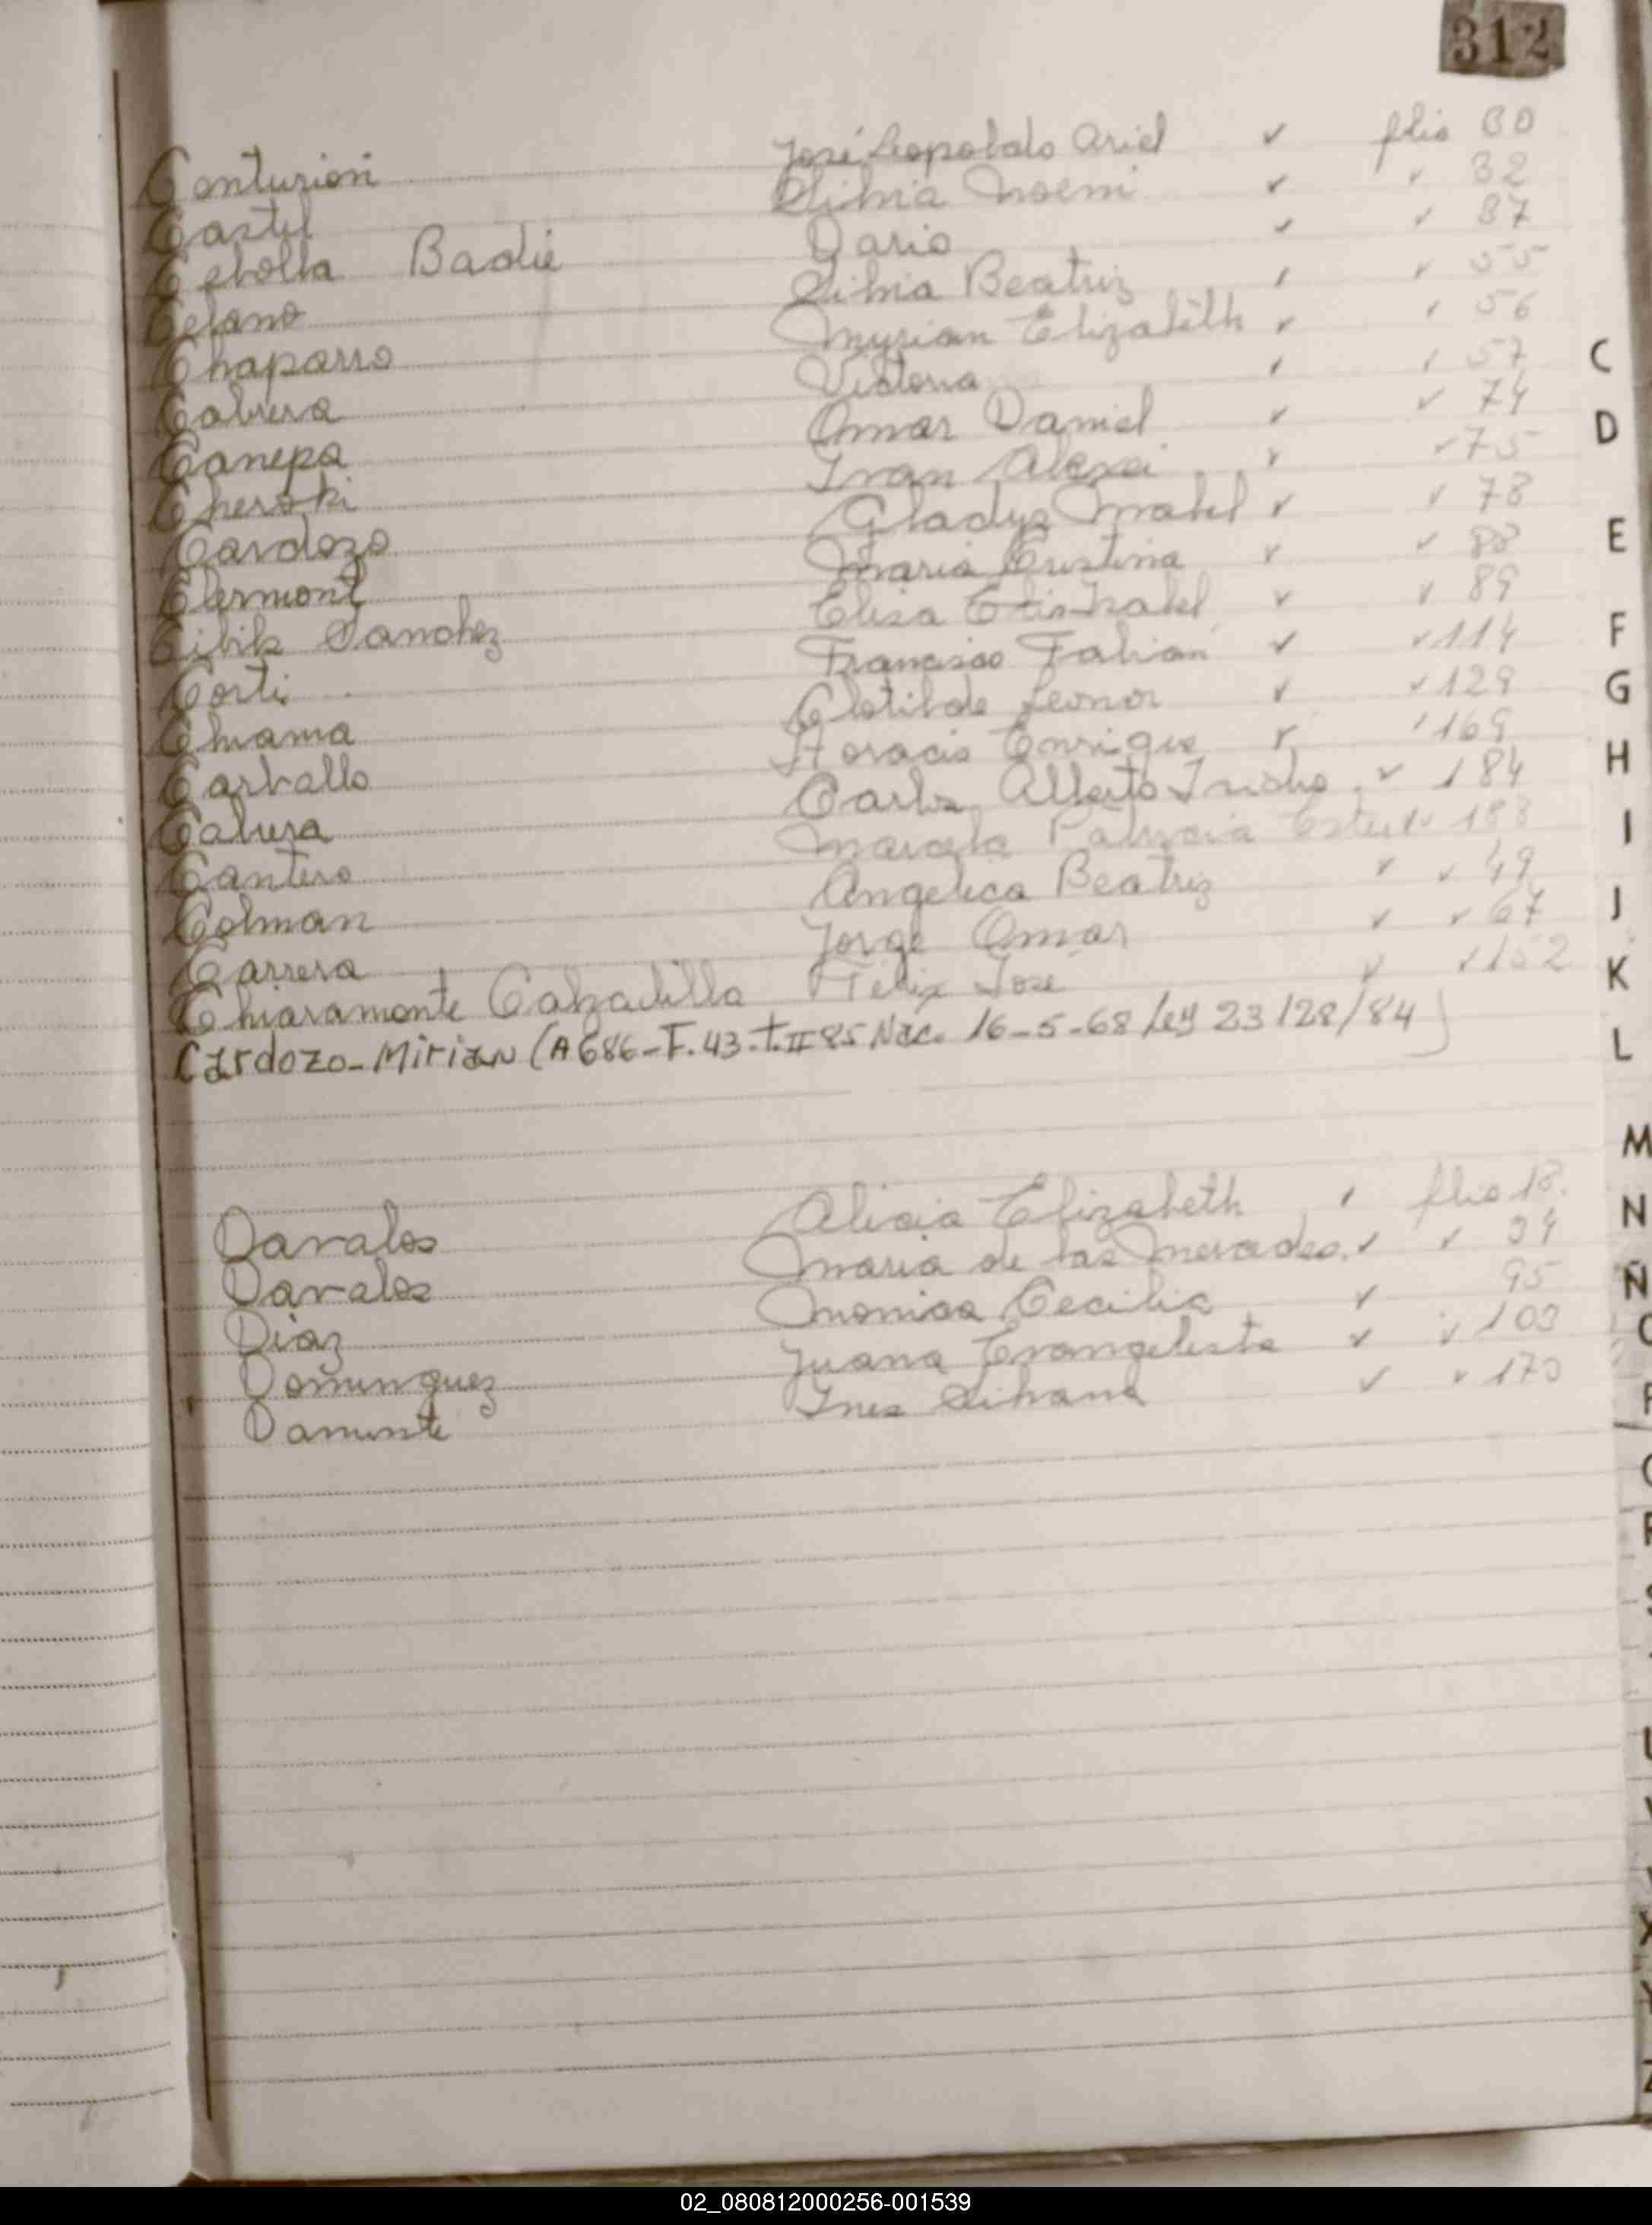 312
Centurion José Leopoldo Ariel ✓ folio 30
Castel Silvia Noemi ✓ ✓ 32
Cebolla Badie Dario ✓ ✓ 37
Silvia Beatriz ✓ ✓ 55
Chaparro Myrian Elizabeth ✓ ✓ 56
Cabrera Victoria ✓ ✓ 57
Canepa Omar Daniel ✓ ✓ 74
Ivan Alexei ✓ ✓ 75
Cardozo Gladys Mabel ✓ ✓ 78
Clermont Maria Cristina ✓ ✓ 88
Cibils Sanchez Elisa Isabel ✓ ✓ 89
Corti Francisco Fabian ✓ ✓ 114
Clotilde Leonor ✓ ✓ 129
Carballo Horacio Enrique ✓ ✓ 169
Cabrera Carlos Alberto ✓ 184
Cantero Marcela Patricia ✓ 188
Colman Angelica Beatriz ✓ ✓ 49
Carrera Jorge Omar ✓ ✓ 67
Chiaramonte Calzadilla Felix José ✓ ✓ 152
Cardozo - Mirian (A 686 - F. 43 - t. II 85 Nac. 16-5-68 Ley 23128/84)
Davalos Alicia Elizabeth ✓ folio 18.
Davalos Maria de las Mercedes. ✓ ✓ 34
Diaz Monica Cecilia ✓ 95
Dominguez Juana Evangelista ✓ ✓ 103
Ines Silvana ✓ ✓ 170
C
D
E
F
G
H
I
J
K
L
M
N
Ñ
X
Z
02_080812000256-001539